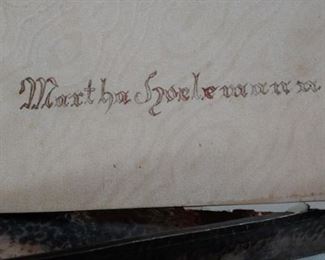 Martha Hoelemann